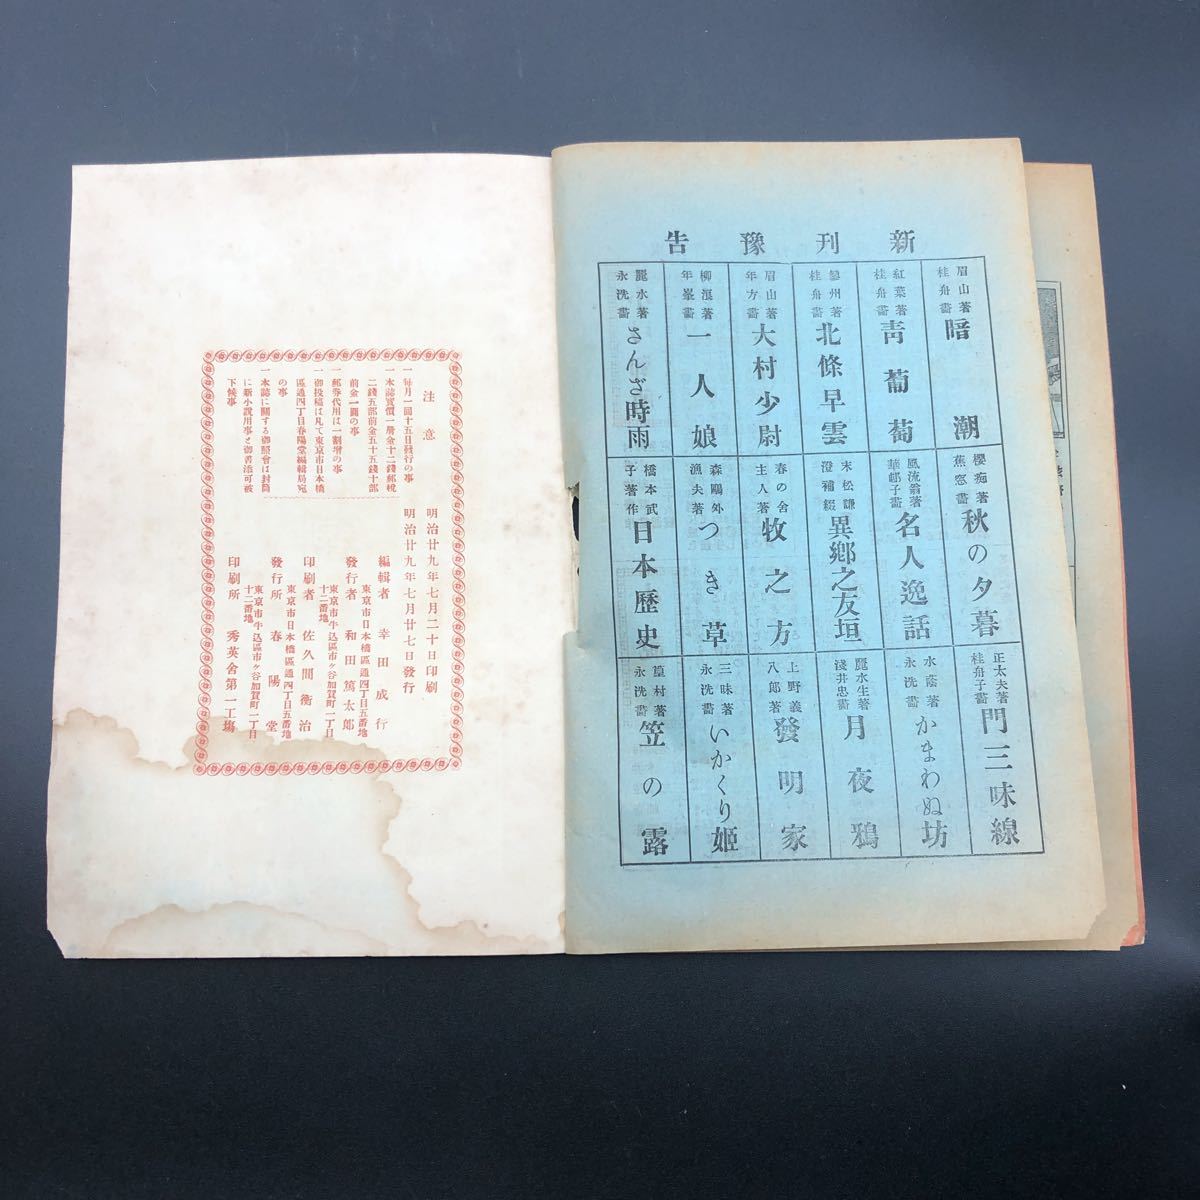 新刊豫告
眉山著
桂舟畵
暗潮
紅葉著
桂舟畵
靑葡萄
桂舟畵
北條早雲
眉山著
年方畵
大村少尉
柳浪著
年峯畵
一人娘
麗水著
永洗畵
さんざ時雨
櫻痴著
蕉窓畵
秋の夕暮
風流翁著
華邨子畵
名人逸話
末松謙
澄補綴
異鄕之友垣
春の舍
主人著
牧之方
森鷗外
漁夫著
つき草
橋本武
子著作
日本歷史
正太夫著
桂舟子畵
門三味線
水蔭著
永洗畵
かまわぬ坊
麗水生著
淺井忠畵
月夜鴉
上野義
八郎著
發明家
三昧著
永洗畵
いかくり姬
篁村著
永洗畵
笠の露
注意
一每月一回十五日發行の事
一本誌實價一册金十二錢郵稅
二錢五部前金五十五錢十部
前金一圓の事
一郵券代用は一割增の事
一御投稿は凡て東京市日本橋
區通四丁目春陽堂編輯局宛
の事
一本誌に關する御照會は封筒
に新小說用事と御書添可被
下候事
明治廿九年七月二十日印刷
明治廿九年七月廿七日發行
編輯者 幸田成行
東京市日本橋區通四丁目五番地
發行者 和田篤太郎
東京市牛込區市ヶ谷加賀町一丁目
十二番地
印刷者 佐久間衡治
東京市日本橋區通四丁目五番地
發行所 春陽堂
東京市牛込區市ヶ谷加賀町一丁目
十二番地
印刷所 秀英舍第一工塲